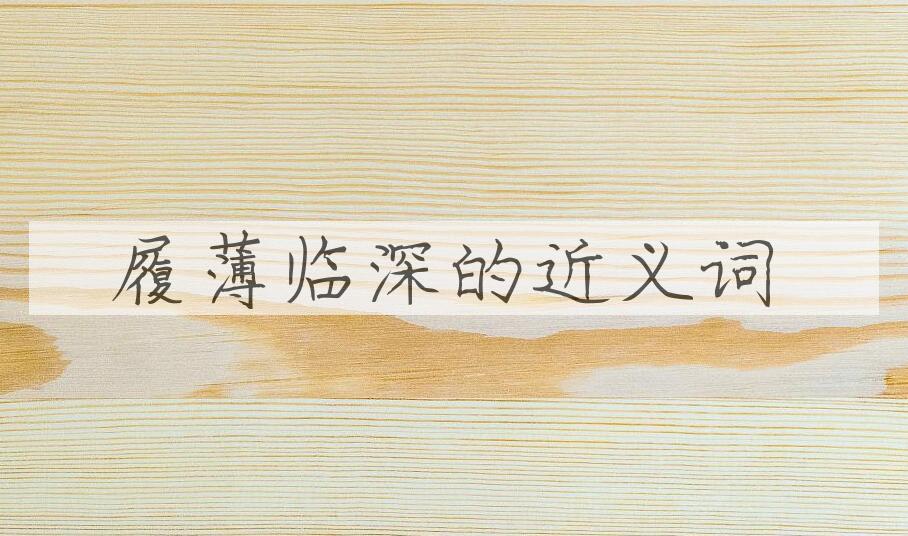 履薄临深的近义词